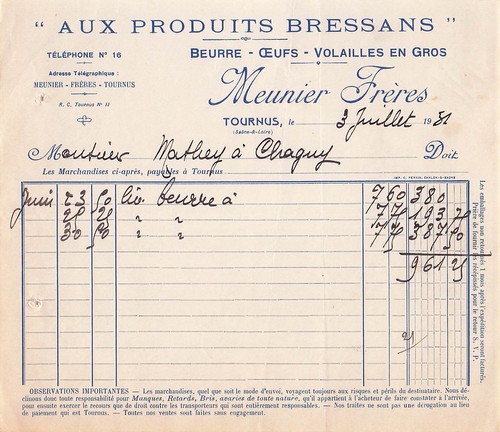 " AUX PRODUITS BRESSANS "
TÉLÉPHONE N° 16
BEURRE - ŒUFS - VOLAILLES EN GROS
Adresse Télégraphique :
MEUNIER - FRÈRES - TOURNUS
Meunier Frères
R. C. Tournus N° 11
TOURNUS, le 3 Juillet 1931
(Saône-&-Loire)
Monsieur Mathey à Chagny Doit
Les Marchandises ci-après, payables à Tournus
IMP. C. PERRIN, CHALON-S-SAONE
Juin 23 50 liv. beurre à 7 60 380
25 25 " " 7 75 193 75
30 50 " " 7 75 387 50
961 25
Les emballages non retournés 1 mois après l'expédition seront facturés.
Prière de fournir les récépissés pour le retour S. V. P.
OBSERVATIONS IMPORTANTES — Les marchandises, quel que soit le mode d'envoi, voyagent toujours aux risques et périls du destinataire. Nous dé-
clinons donc toute responsabilité pour Manques, Retards, Bris, avaries de toute nature, qu'il appartient à l'acheteur de faire constater à l'arrivée,
pour ensuite exercer le recours que de droit contre les transporteurs qui sont entièrement responsables. — Nos traites ne sont pas une dérogation au lieu
de paiement qui est Tournus. — Toutes nos ventes sont faites sans engagement.